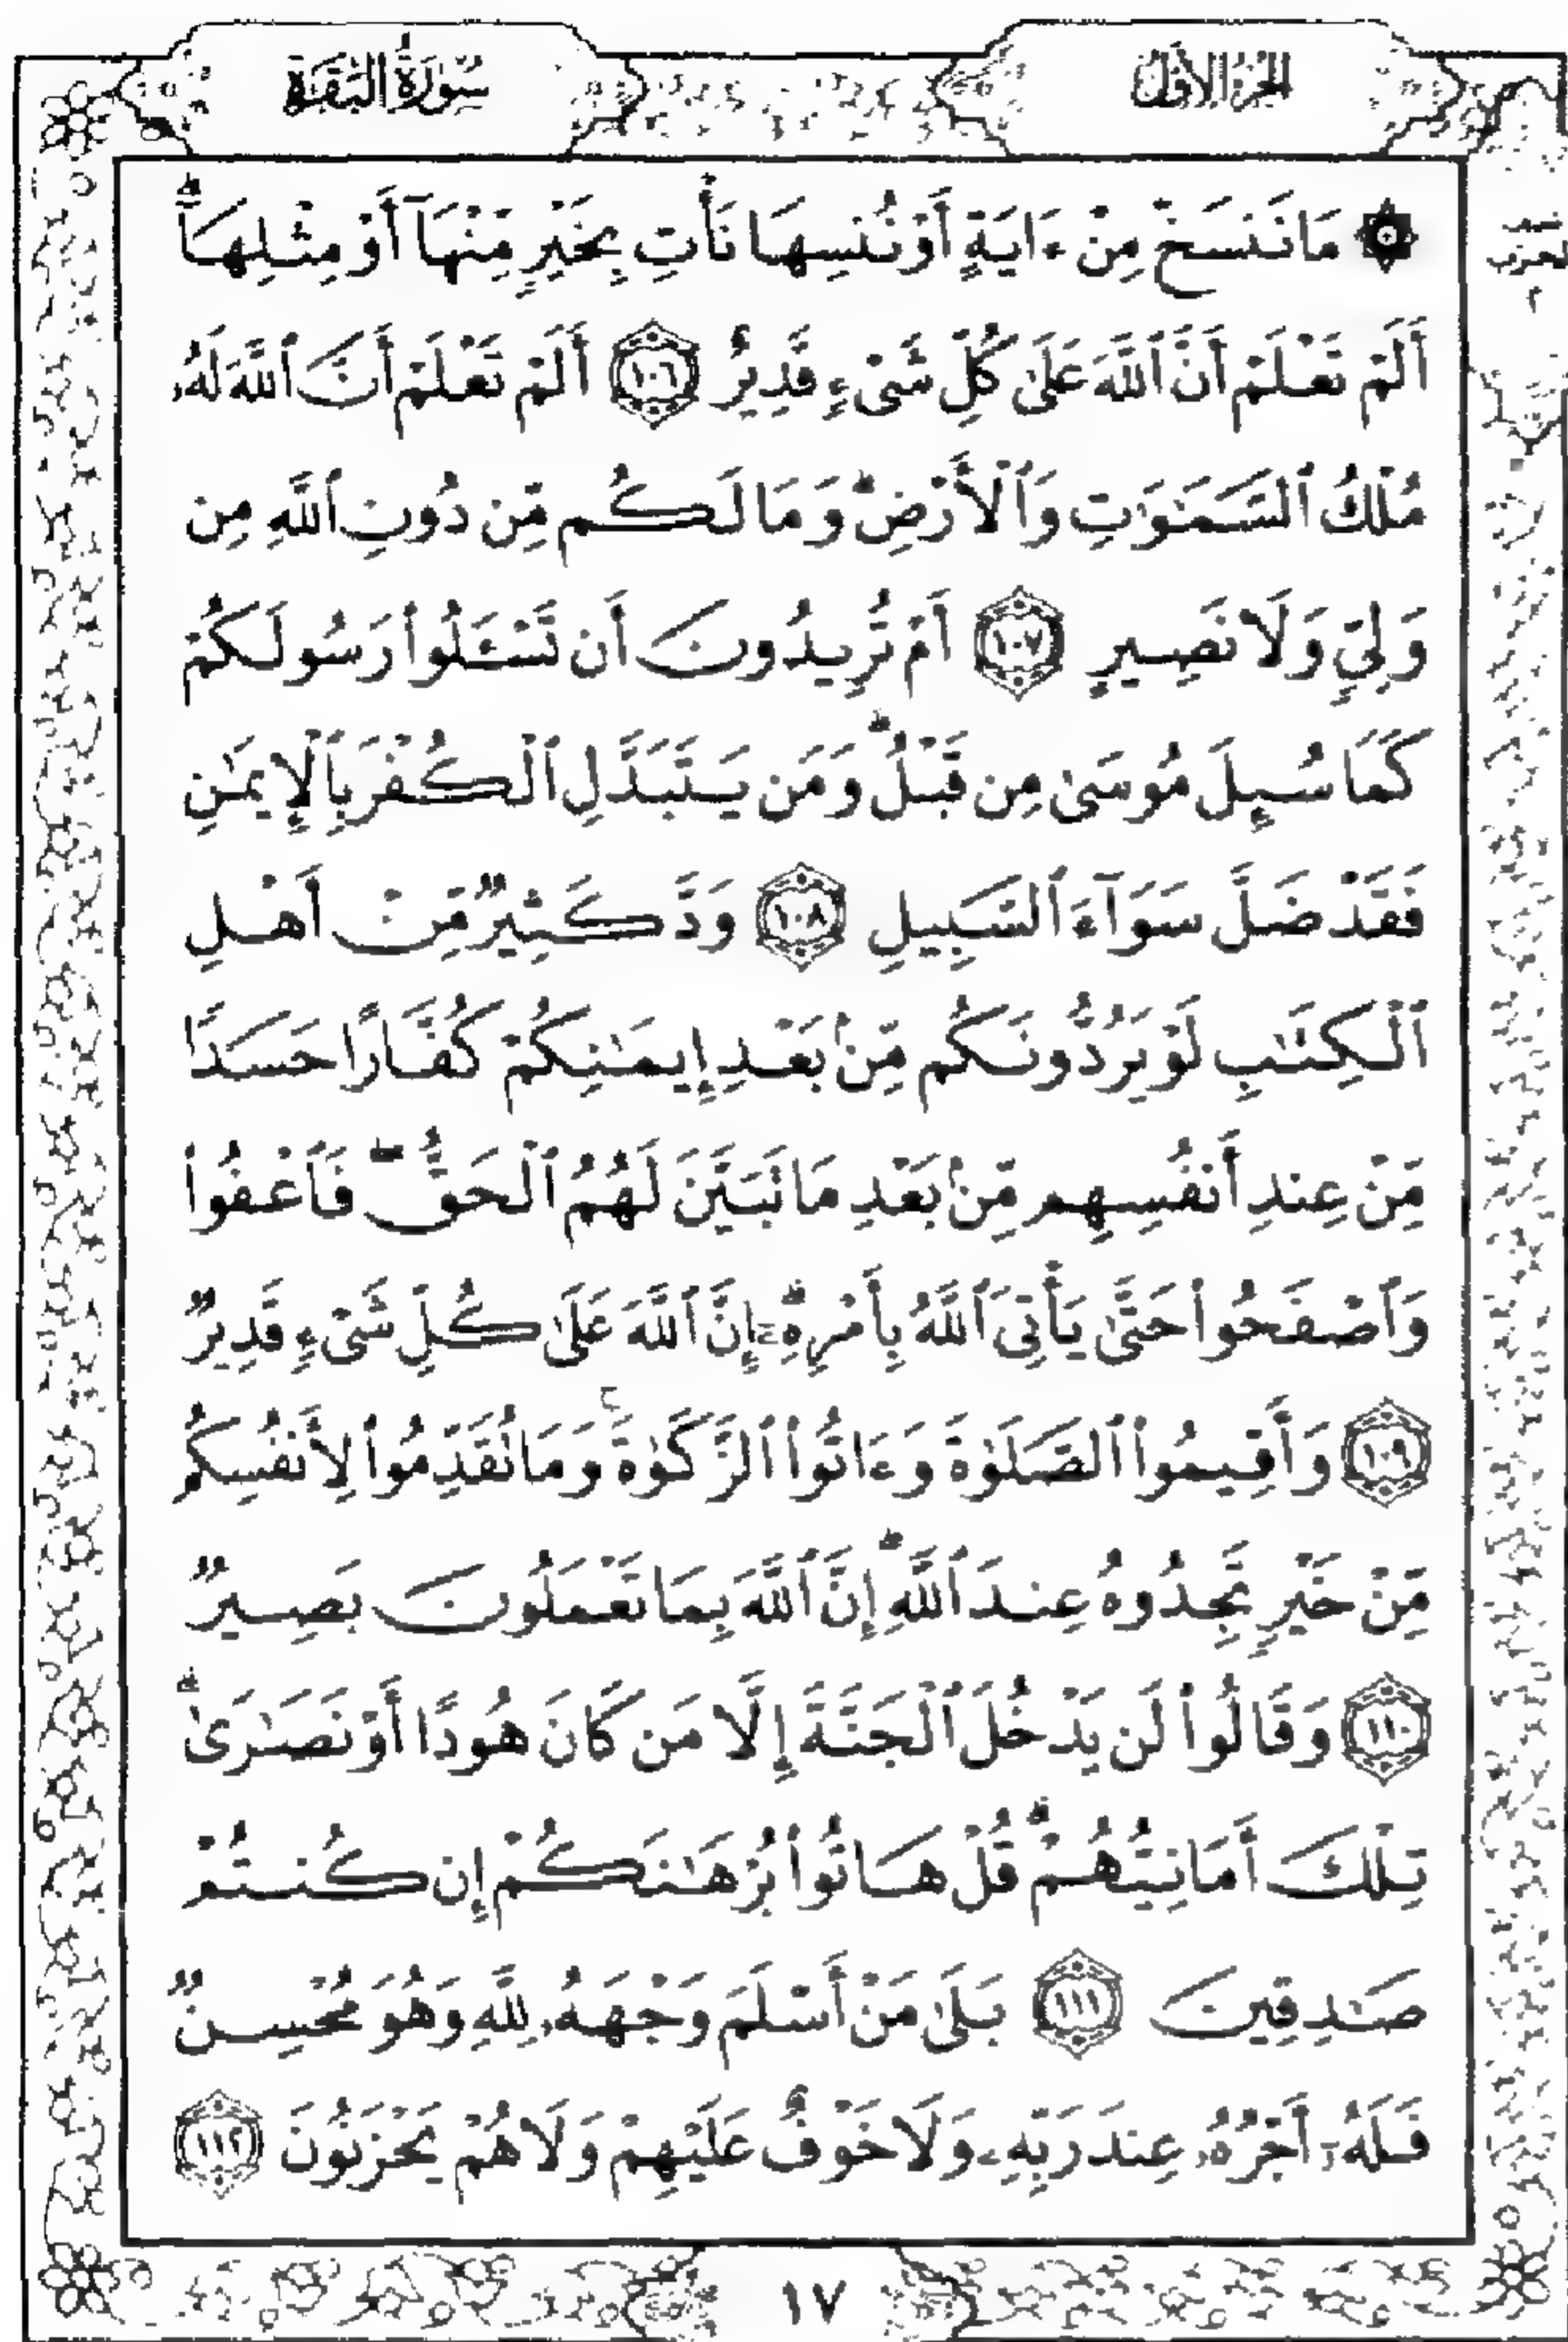 سُورَةُ البَقَرَةِ
الجُزْءُ الأَوَّلُ
۞ مَا نَنسَخْ مِنْ ءَايَةٍ أَوْ نُنسِهَا نَأْتِ بِخَيْرٍ مِّنْهَآ أَوْ مِثْلِهَآ ۗ
أَلَمْ تَعْلَمْ أَنَّ ٱللَّهَ عَلَىٰ كُلِّ شَىْءٍ قَدِيرٌ ١٠٦ أَلَمْ تَعْلَمْ أَنَّ ٱللَّهَ لَهُۥ
مُلْكُ ٱلسَّمَٰوَٰتِ وَٱلْأَرْضِ ۗ وَمَا لَكُم مِّن دُونِ ٱللَّهِ مِن
وَلِىٍّ وَلَا نَصِيرٍ ١٠٧ أَمْ تُرِيدُونَ أَن تَسْـَٔلُوا۟ رَسُولَكُمْ
كَمَا سُئِلَ مُوسَىٰ مِن قَبْلُ ۗ وَمَن يَتَبَدَّلِ ٱلْكُفْرَ بِٱلْإِيمَٰنِ
فَقَدْ ضَلَّ سَوَآءَ ٱلسَّبِيلِ ١٠٨ وَدَّ كَثِيرٌ مِّنْ أَهْلِ
ٱلْكِتَٰبِ لَوْ يَرُدُّونَكُم مِّنۢ بَعْدِ إِيمَٰنِكُمْ كُفَّارًا حَسَدًا
مِّنْ عِندِ أَنفُسِهِم مِّنۢ بَعْدِ مَا تَبَيَّنَ لَهُمُ ٱلْحَقُّ ۖ فَٱعْفُوا۟
وَٱصْفَحُوا۟ حَتَّىٰ يَأْتِىَ ٱللَّهُ بِأَمْرِهِۦٓ ۗ إِنَّ ٱللَّهَ عَلَىٰ كُلِّ شَىْءٍ قَدِيرٌ
١٠٩ وَأَقِيمُوا۟ ٱلصَّلَوٰةَ وَءَاتُوا۟ ٱلزَّكَوٰةَ ۚ وَمَا تُقَدِّمُوا۟ لِأَنفُسِكُم
مِّنْ خَيْرٍ تَجِدُوهُ عِندَ ٱللَّهِ ۗ إِنَّ ٱللَّهَ بِمَا تَعْمَلُونَ بَصِيرٌ
١١٠ وَقَالُوا۟ لَن يَدْخُلَ ٱلْجَنَّةَ إِلَّا مَن كَانَ هُودًا أَوْ نَصَٰرَىٰ ۗ
تِلْكَ أَمَانِيُّهُمْ ۗ قُلْ هَاتُوا۟ بُرْهَٰنَكُمْ إِن كُنتُمْ
صَٰدِقِينَ ١١١ بَلَىٰ مَنْ أَسْلَمَ وَجْهَهُۥ لِلَّهِ وَهُوَ مُحْسِنٌ
فَلَهُۥٓ أَجْرُهُۥ عِندَ رَبِّهِۦ وَلَا خَوْفٌ عَلَيْهِمْ وَلَا هُمْ يَحْزَنُونَ ١١٢
١٧